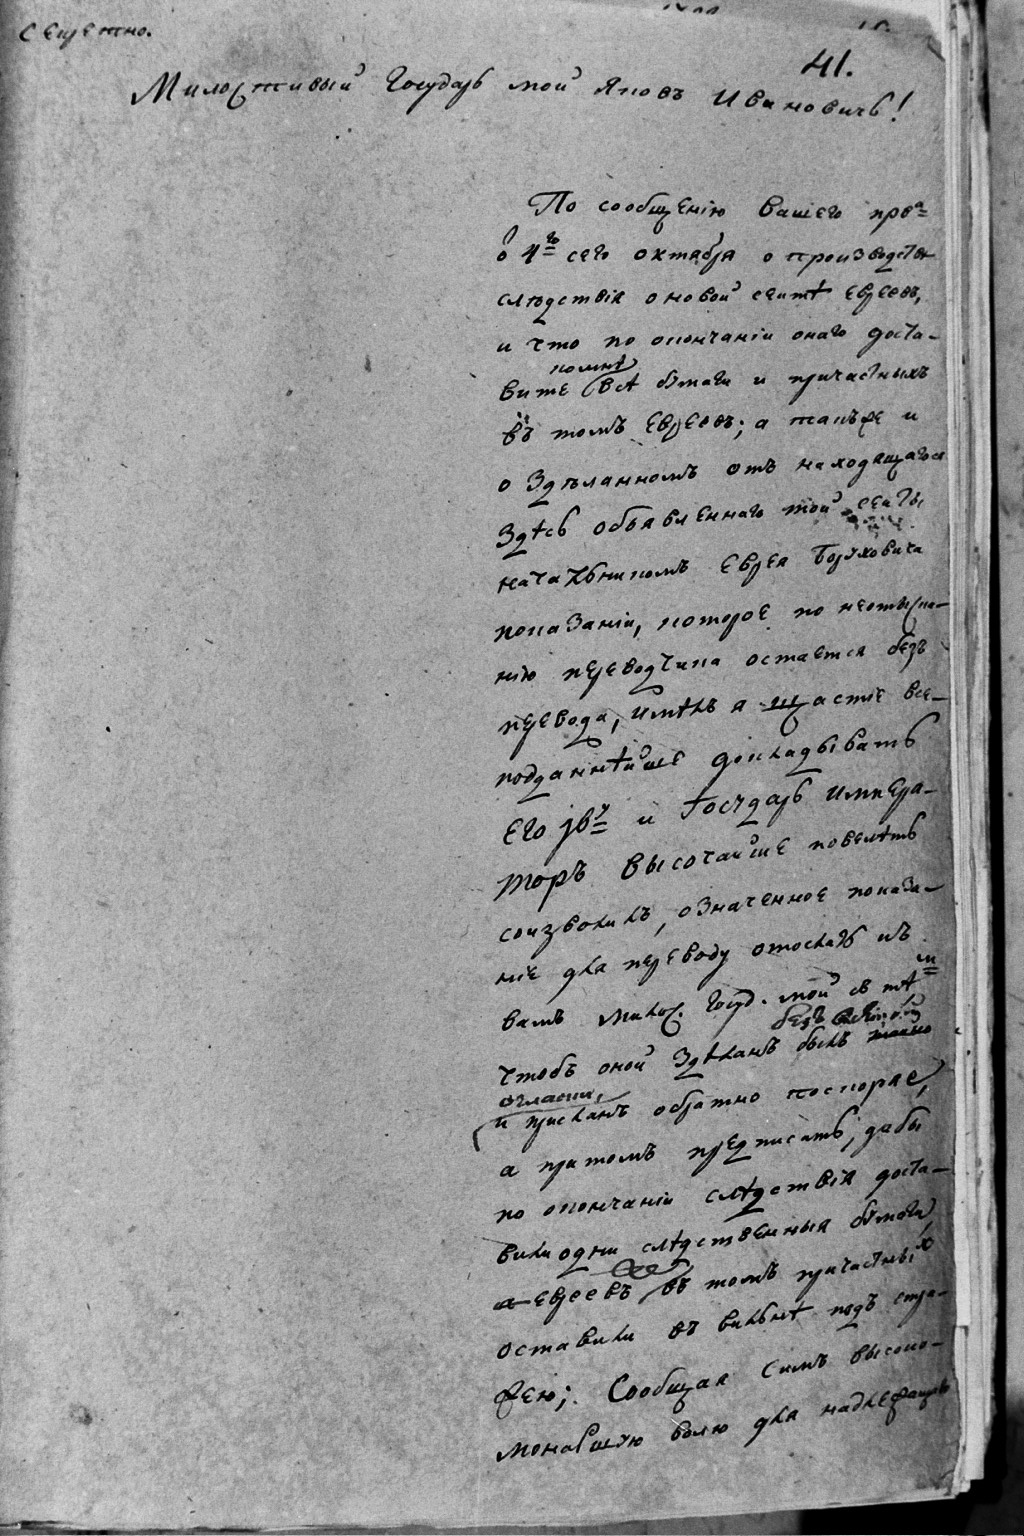 Секретно.
41.
Милостивый Государь мой Яковъ Ивановичь!
По сообщенію вашего прва
о 4го сего октября о производстве
слѣдствія о новой сектѣ евреевъ,
и что по окончаніи онаго доста-
вите все бумаги и причастныхъ
въ томъ евреевъ; а также и
о зделанномъ отъ находящагося
здѣсь объявленнаго той секты
начальникомъ еврея Боруховича
показаніи, которое по неотыска-
нію переводчика остается безъ
перевода, имѣлъ я щастіе все-
подданнѣйше докладывать
Его и Государь Импера-
торъ высочайше повелѣть
соизволилъ, означенное показа-
ніе для переводу отослать къ
вамъ милос. Госуд. мой съ тѣм
безъ
чтобъ оной зделанъ былъ
огласки,
и присланъ обратно поскорѣе,
а притомъ предписать, дабы
по окончаніи слѣдствія доста-
вили одни слѣдственныя бумаги,
а евреевъ въ томъ причастныхъ
оставили въ Вильнѣ подъ стра-
жею; Сообщая симъ высоко-
монаршую волю для надлежащаго